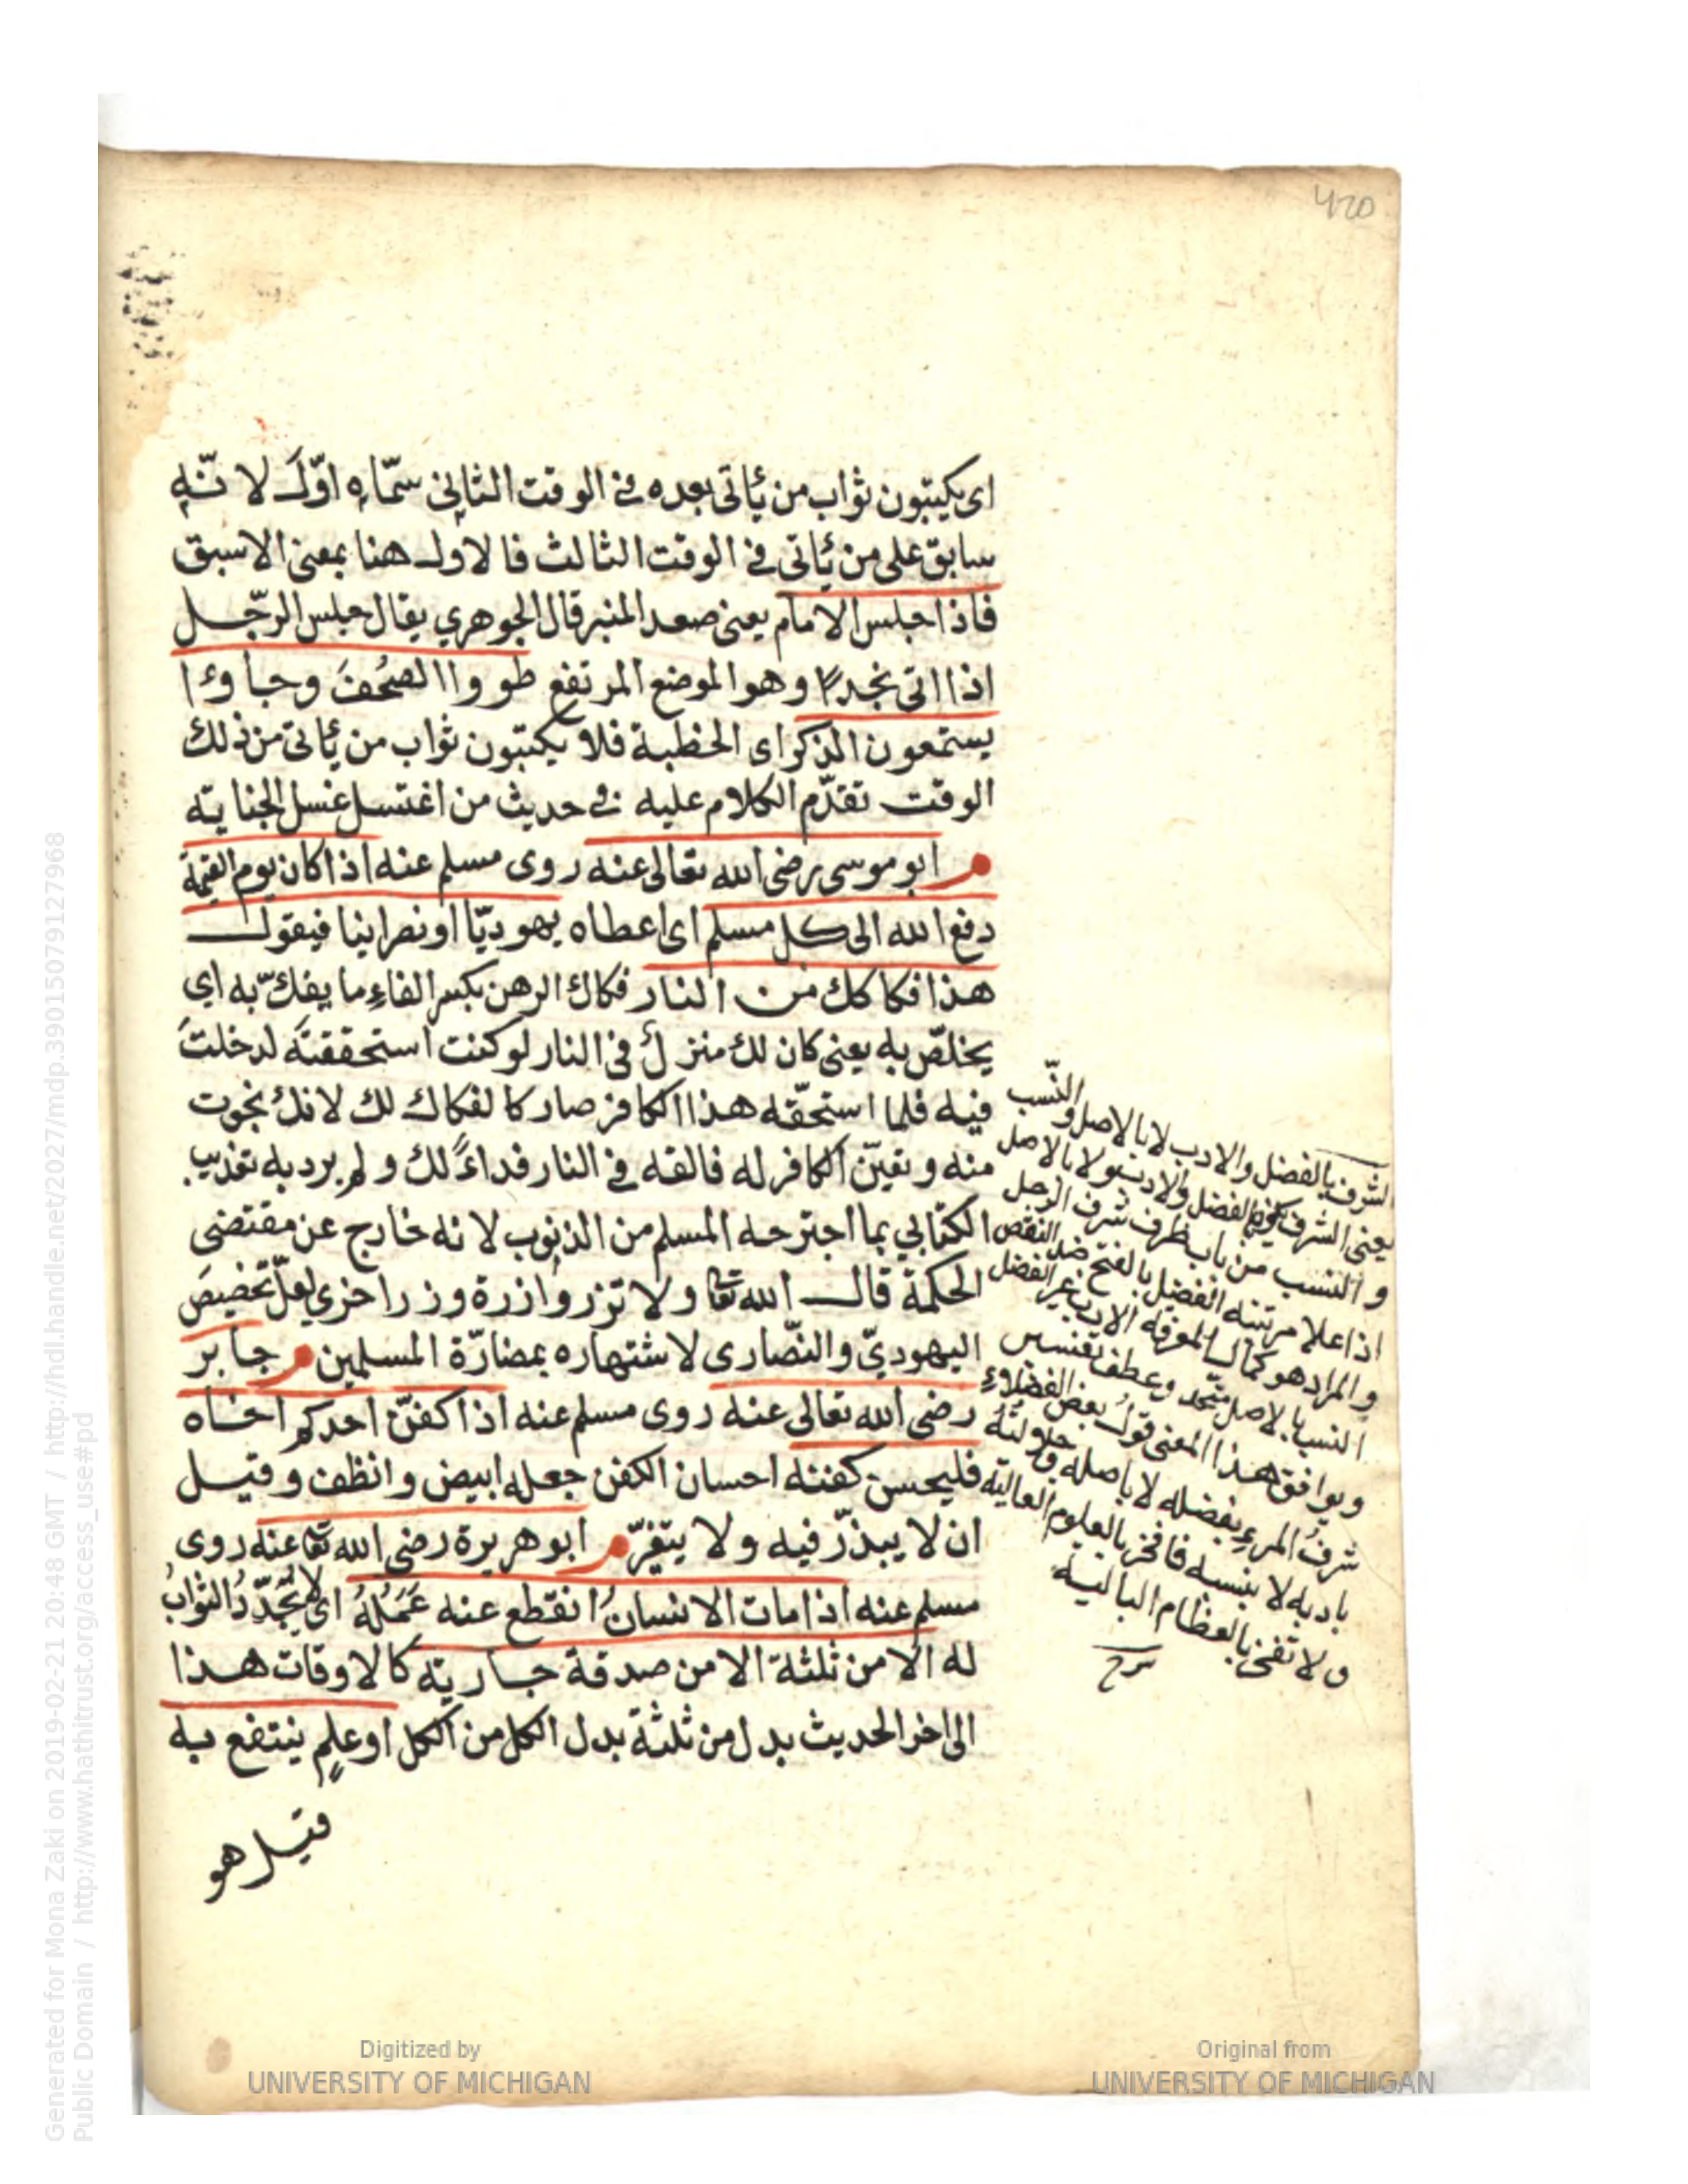 420
اى يكتبون ثواب من يأتى بعده فى الوقت الثانى سمّاه اوّل لا نّه
سابق على من يأتى فى الوقت الثالث فالاول هنا بمعنى الاسبق
فاذا جلس الامام يعنى صعد المنبر قال الجوهري يقال جلس الرّجل
اذا اتى نجدًا وهو الموضع المرتفع طووا الصُحُفَ وجاؤا
يستمعون الذكر اى الخطبة فلا يكتبون ثواب من يأتى من ذلك
الوقت تقدّم الكلام عليه فى حديث من اغتسل غسل الجنابة
م ابو موسى رضى الله تعالى عنه روى مسلم عنه اذا كان يوم القيمة
دفع الله الى كل مسلم اى اعطاه يهوديّا او نصرانيا فيقول
هذا فكاكك من النار فكاك الرهن بكسر الفاء ما يفكّ به اي
يخلّص به يعنى كان لك منزل فى النار لو كنت استحققته لدخلت
فيه فلما استحقّه هذا الكافر صار كالفكاك لك لانك نجوت
منه وتعيّن الكافر له فالقه فى النار فداءً لك ولم يرد به تعذيب
الكتابي بما اجترحه المسلم من الذنوب لانه خارج عن مقتضى
الحكمة قال الله تعا ولا تزر وازرة وزر اخرى لعلّ تخصيص
اليهوديّ والنّصارى لاشتهاره بمضارّة المسلمين م جابر
رضى الله تعالى عنه روى مسلم عنه اذا كفنّ احدكم اخاه
فليحسن كفنه احسان الكفن جعله ابيض وانظف وقيل
ان لا يبذّر فيه ولا يتقترّ م ابو هريرة رضى الله تعا عنه روى
مسلم عنه اذا مات الانسان انقطع عنه عَمَلُهُ اى لا يتجدّد الثوابُ
له الا من ثلثة الا من صدقة جارية كالاوقات هذا
الى اخر الحديث بدل من ثلثة بدل الكل من الكل او علمٍ ينتفع به
قيل هو
الشرف بالفضل والادب لا بالاصل والنّسب
يعنى الشرف يكون بالفضل والادب ولا بالاصل
و النسب من باب ظرف شرف الرجل
اذا علا مرتبته الفضل بالفتح ضد النقص
والمراد هو كمال المعرفة الادب غير الفضل
النسب بالاصل متّحد وعطف تفسير
ويوافق هذا المعنى قول بعض الفضلاء
شرفُ المرء بفضله لا باصله وجلالته
بادبه لا بنسبه فافخر بالعلوم العالية
ولا تفخر بالعظام البالية
شرح
Digitized by
UNIVERSITY OF MICHIGAN
Original from
UNIVERSITY OF MICHIGAN
Generated for Mona Zaki on 2019-02-21 20:48 GMT / http://hdl.handle.net/2027/mdp.39015079127968
Public Domain / http://www.hathitrust.org/access_use#pd